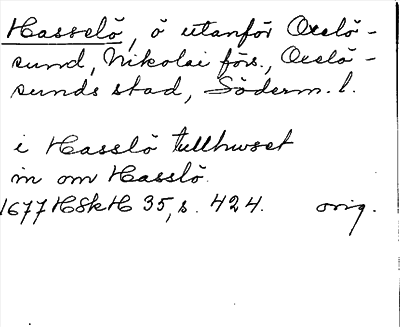 Hasselö, ö utanför Oxelö-
sund, Nikolai förs., Oxelö-
sunds stad, Söderm. l.
i Hasslö tullhuset
in om Hasslö.
1677 HSkH 35, s. 424. orig.